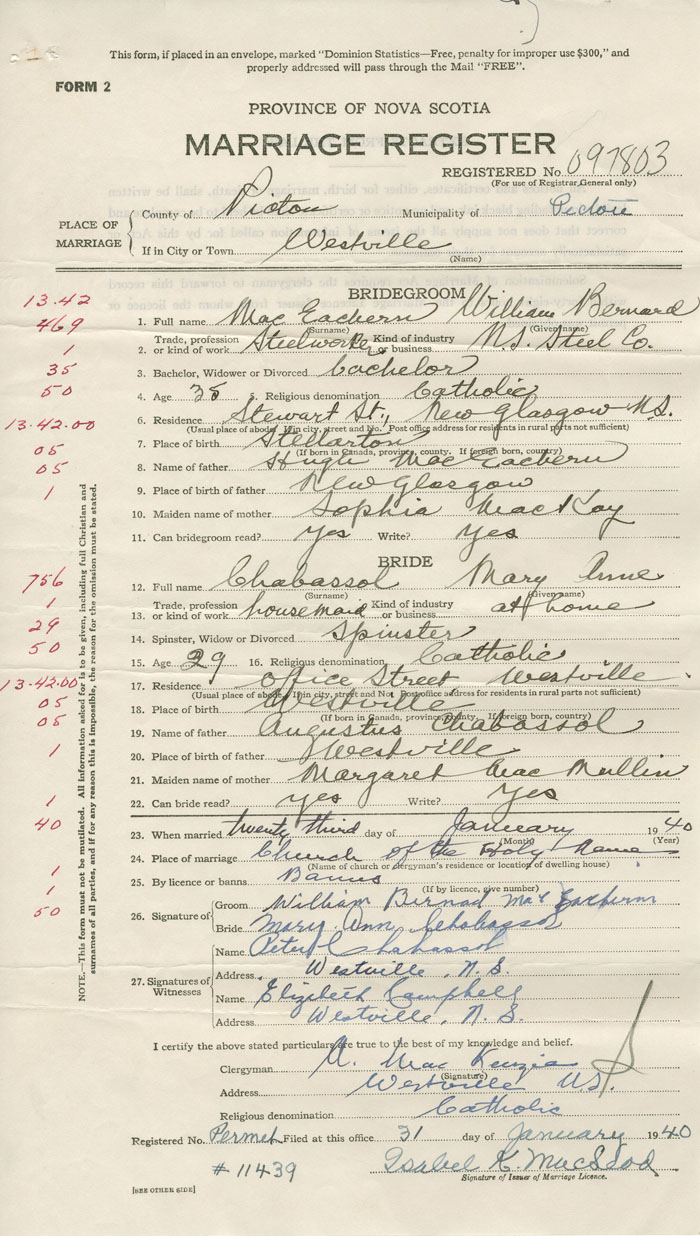 This form, if placed in an envelope, marked "Dominion Statistics—Free, penalty for improper use $300," and
properly addressed will pass through the Mail "FREE".
FORM 2
PROVINCE OF NOVA SCOTIA
MARRIAGE REGISTER
REGISTERED No. 097803
(For use of Registrar General only)
PLACE OF MARRIAGE
County of Pictou Municipality of Pictou
If in City or Town Westville
(Name)
BRIDEGROOM
1. Full name MacEachern William Bernard
(Surname) (Given name)
2. Trade, profession or kind of work Steelworker Kind of industry or business N.S. Steel Co.
3. Bachelor, Widower or Divorced Bachelor
4. Age 35 5. Religious denomination Catholic
6. Residence Stewart St., New Glasgow N.S.
(Usual place of abode. If in city, street and No. Post office address for residents in rural parts not sufficient)
7. Place of birth Stellarton
(If born in Canada, province, county. If foreign born, country)
8. Name of father Hugh MacEachern
9. Place of birth of father New Glasgow
10. Maiden name of mother Sophia MacKay
11. Can bridegroom read? yes Write? yes
BRIDE
12. Full name Chabassol Mary Anne
(Surname) (Given name)
13. Trade, profession or kind of work housemaid Kind of industry or business at home
14. Spinster, Widow or Divorced Spinster
15. Age 29 16. Religious denomination Catholic
17. Residence Office Street Westville
(Usual place of abode. If in city, street and No. Post office address for residents in rural parts not sufficient)
18. Place of birth Westville
(If born in Canada, province, county. If foreign born, country)
19. Name of father Augustus Chabassol
20. Place of birth of father Westville
21. Maiden name of mother Margaret MacMullin
22. Can bride read? yes Write? yes
23. When married twenty third day of January 1940
(Month) (Year)
24. Place of marriage Church of the Holy Name
(Name of church or clergyman's residence or location of dwelling house)
25. By licence or banns Banns
(If by licence, give number)
26. Signature of
Groom William Bernad MacEachern
Bride Mary Ann Chabassol
27. Signatures of Witnesses
Name Peter Chabassol
Address Westville, N.S.
Name Elizibeth Campbell
Address Westville, N.S.
I certify the above stated particulars are true to the best of my knowledge and belief.
Clergyman A. MacKenzie
(Signature)
Address Westville N.S.
Religious denomination Catholic
Registered No. Permet Filed at this office 31 day of January 1940
# 11439 Isabel K. MacLeod
Signature of Issuer of Marriage Licence.
[SEE OTHER SIDE]
NOTE.—This form must not be mutilated. All information asked for is to be given, including full Christian and
surnames of all parties, and if for any reason this is impossible, the reason for the omission must be stated.
13.42
469
1
35
50
13.42.00
05
05
1
756
1
29
50
13-42.00
05
05
1
1
40
1
1
50